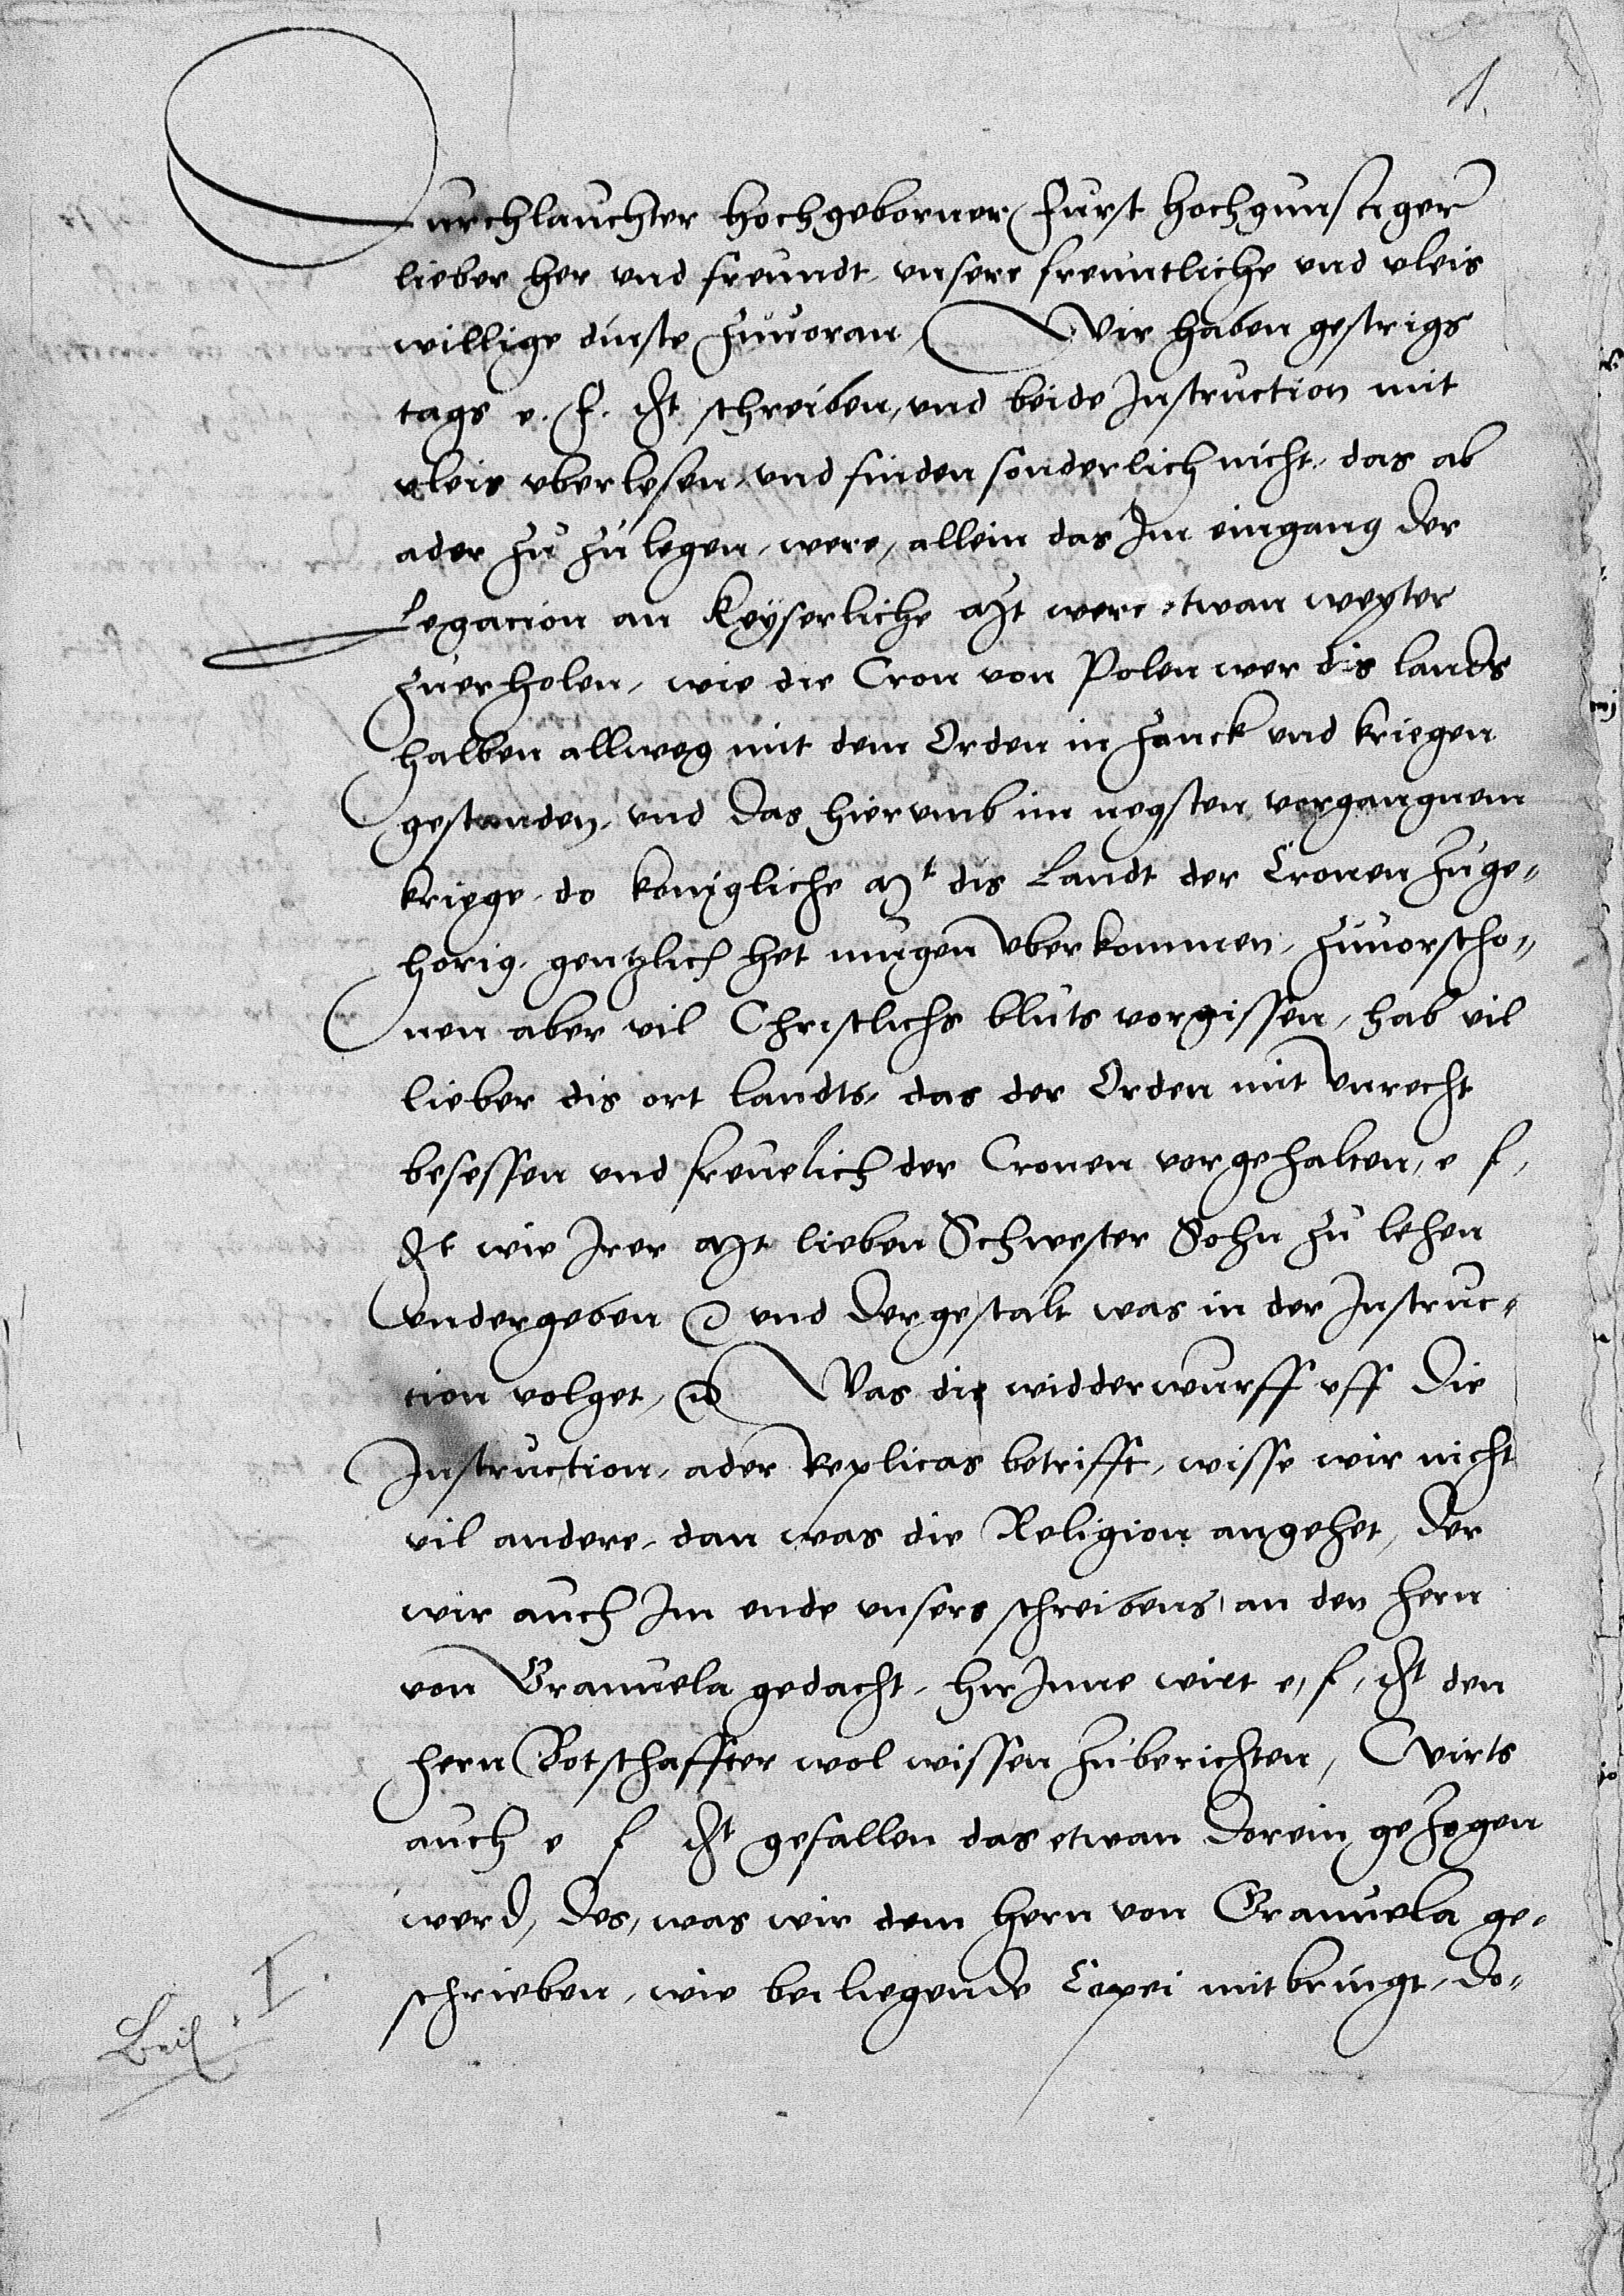 1.
Durchlauchter Hochgeborner Furst hochgunstiger
lieber her vnd freundt, vnsere freuntliche vnd vleis
willige dinste zuuoran, Wir haben gestrigs
tags e. f. dt schreiben, vnd beide Instruction mit
vleis vberlesen, vnd finden sonderlich nicht, das ab
ader zu zulegen, were, allein das Im eingang der
Legacion an Keyserliche Mt were etwan weyter
zuerholen, wie die Cron von Polen wer dis lands
halben allweg mit dem Orden in zanck vnd kriegen
gestanden, vnd das hierumb im negsten vergangnem
kriege, do konigliche Mt dis Landt der Cronen zuge-
horig, gentzlich het mugen vberkommen, zuuorscho-
nen aber vil Christlichs bluts vorgissen, hab vil
lieber dis ort landts, das der Orden mit vnrecht
besessen vnd freuelich der Cronen vorgehalten, e f,
dt wie Irer Mt lieben Schwester Sohn zu lehen
vndergeben etc vnd dergestalt was in der Instruc-
tion volget, etc Was die widderwurff vff die
Instruction, ader Replicas betrifft, wisse wir nicht
vil andere, dan was die Religion angehet, der
wir auch Im ende vnsers schreibens, an den hern
von Granuela gedacht, hirInne wirt e, f, dt den
hern Botschaffter wol wissen zuberichten, Wirts
auch e f dt gefallen das etwan dorein gezogen
werd, des, was wir dem hern von Granuela ge-
schrieben, wie beiliegende Copei mitbringt, do-
Beil. I.